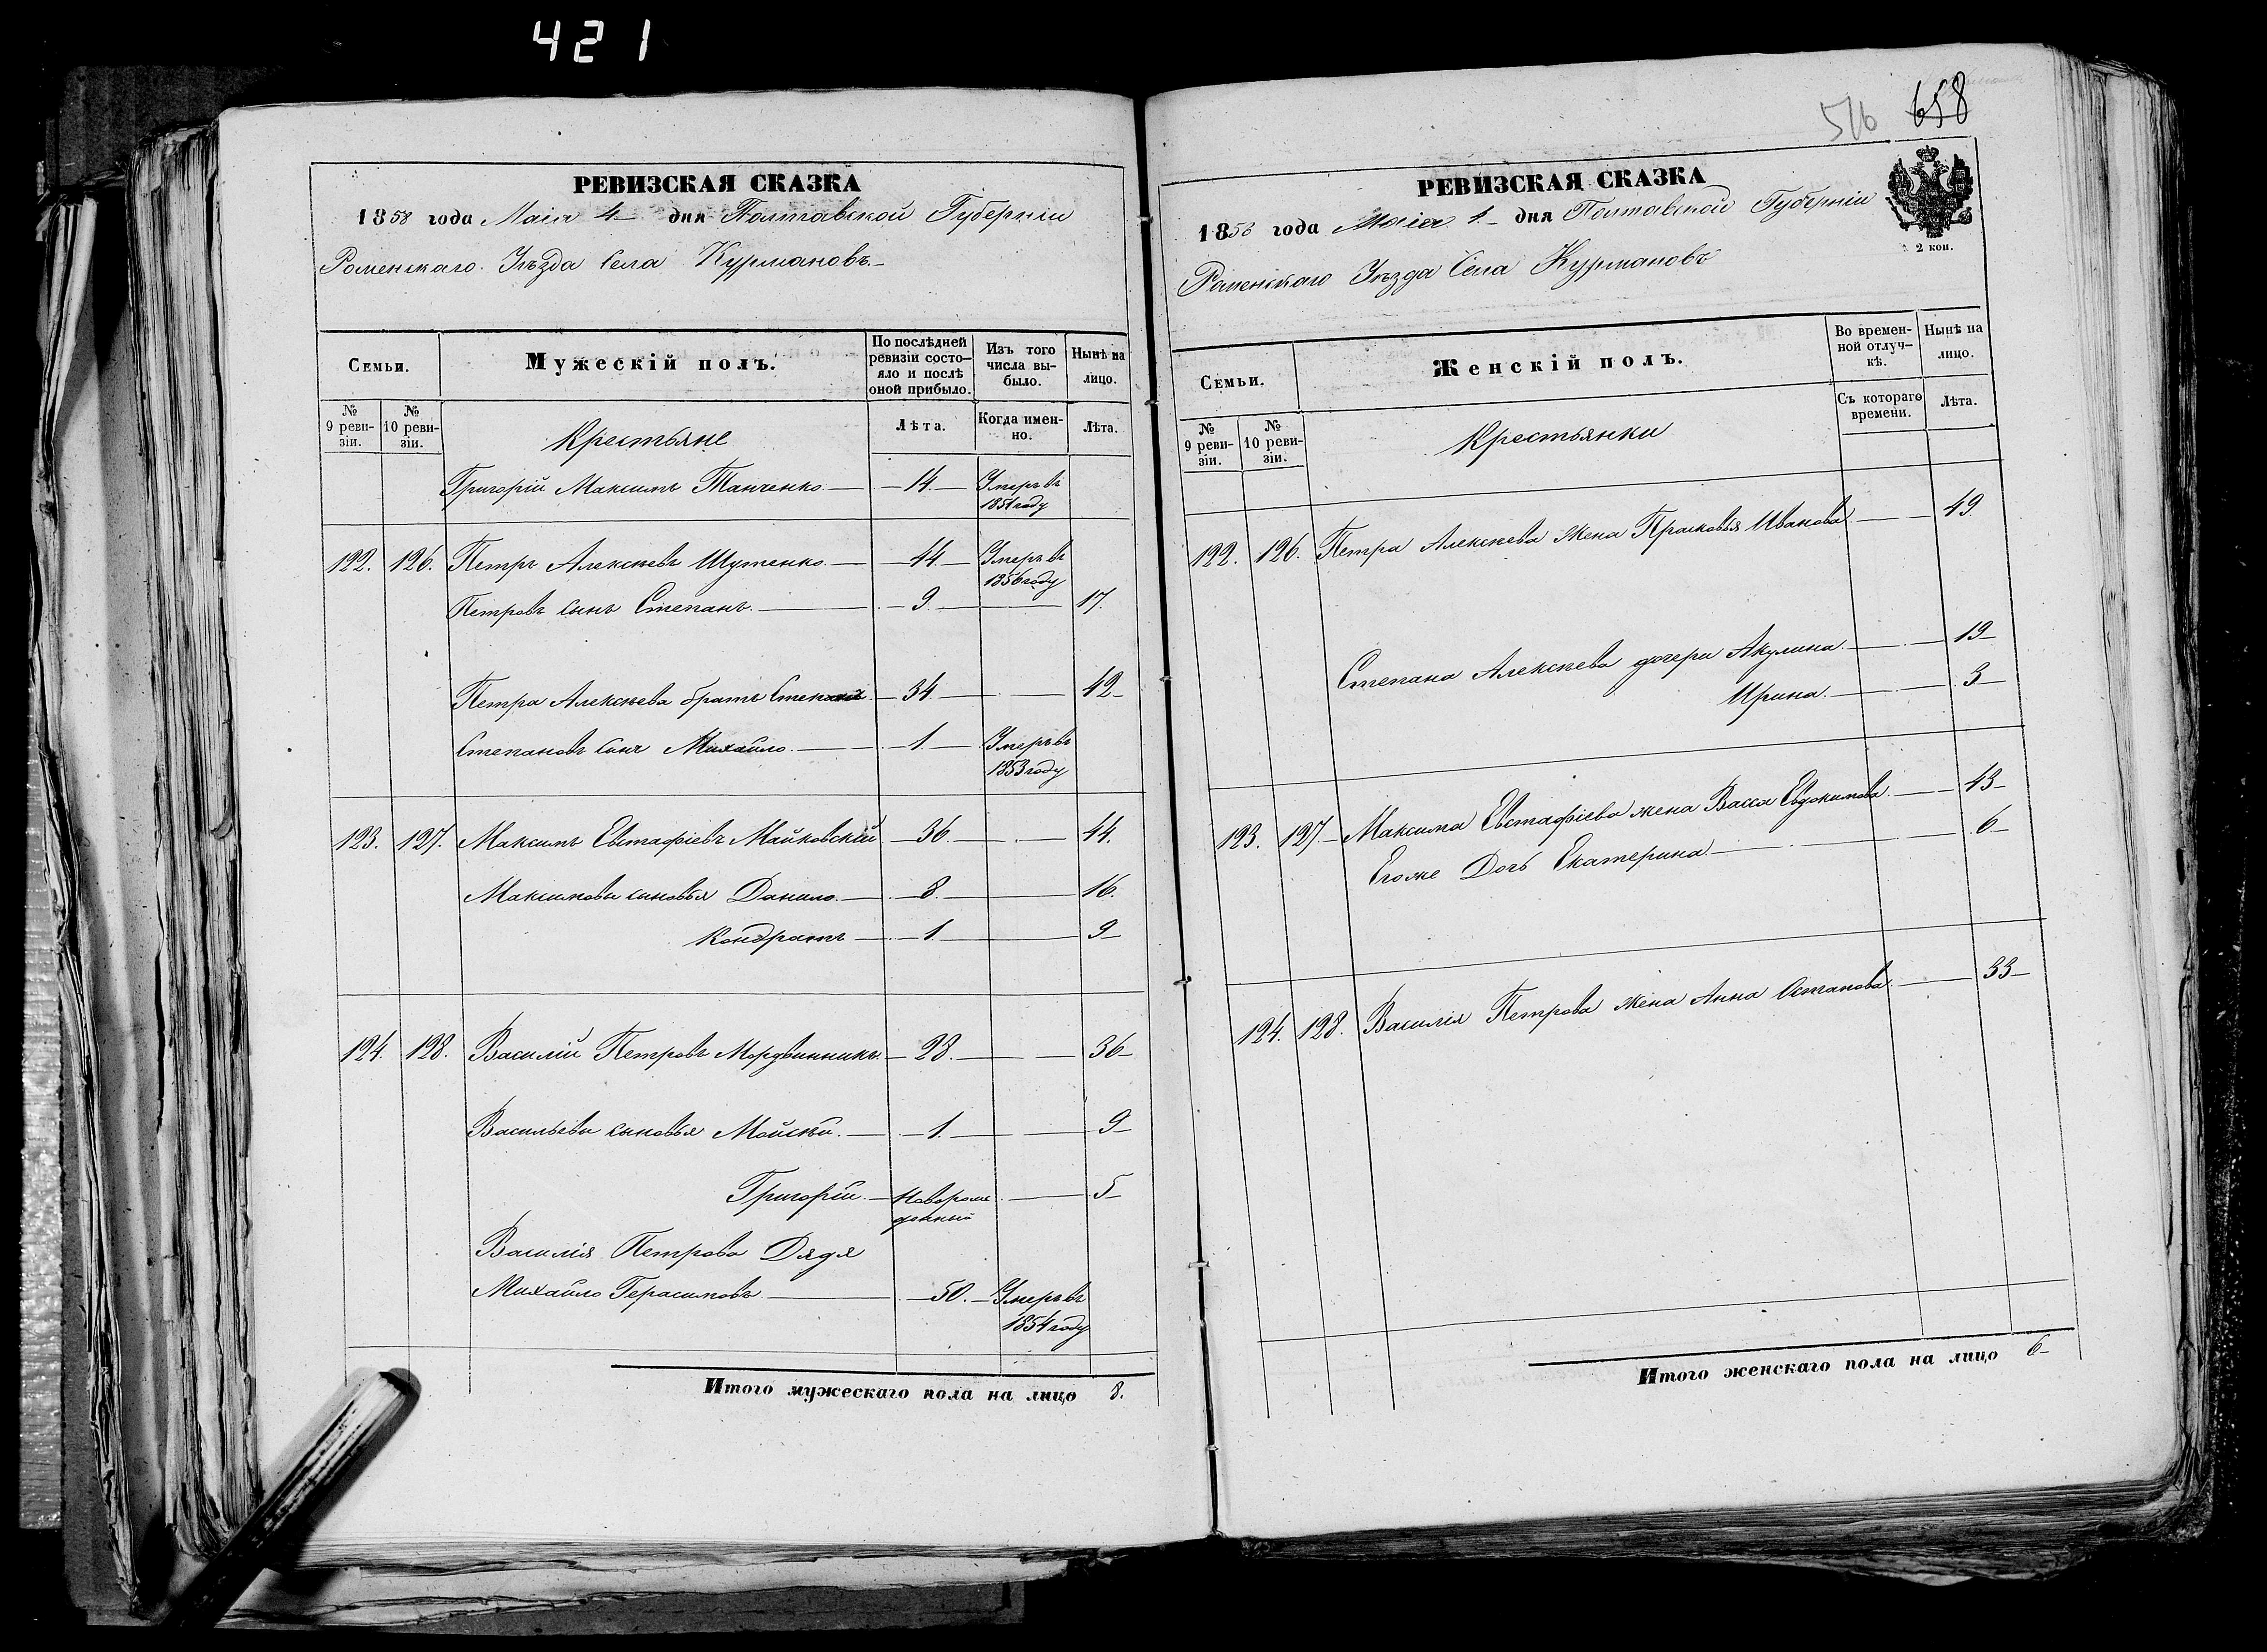 421
РЕВИЗСКАЯ СКАЗКА
1858 года Маія 1 дня Полтавской Губерніи
Роменскаго Уѣзда Села Курмановъ
Семьи.
Мужескій полъ.
По послѣдней ревизіи состояло и послѣ оной прибыло.
Изъ того числа выбыло.
Нынѣ на лицо.
№ 9 ревизіи.
№ 10 ревизіи.
Крестьяне
Лѣта.
Когда именно.
Лѣта.
Григорій Максимъ Танченко 14. Умеръ въ
1851 году
122. 126. Петръ Алексѣевъ Шутенко 44. Умеръ въ
1856 году
Петровъ сынъ Степанъ 9. 17.
Петра Алексѣева братъ Степанъ 34. 42
Степановъ сынъ Михайло 1. Умеръ въ
1853 году
123. 127. Максимъ Евстафіевъ Майковскій 36. 44.
Максимовы сыновья Данило 8. 16.
Кондратъ 1. 9
124. 128. Василій Петровъ Мордвинникъ 28. 36
Васильевы сыновья Мойсѣй 1. 9
Григорій новорож 5
денный
Василія Петрова Дядя
Михайло Герасимовъ 50. Умеръ въ
1854 году
Итого мужескаго пола на лицо 8.
516 658
РЕВИЗСКАЯ СКАЗКА
1858 года Маія 1 дня Полтавской Губерніи
2 коп.
Роменскаго Уѣзда Села Курмановъ
Семьи.
Женскій полъ.
Во временной отлучкѣ.
Нынѣ на лицо.
№ 9 ревизіи.
№ 10 ревизіи.
Крестьянки
Съ котораго времени.
Лѣта.
122. 126. Петра Алексѣева жена Прасковья Иванова 49
Степана Алексѣева дочери Акулина 19
Ирина 3
123. 127. Максима Евстафіева жена Васса Евдокимова 43
Егоже Дочь Екатерина 6
124. 128. Василія Петрова жена Анна Остапова 33
Итого женскаго пола на лицо 6